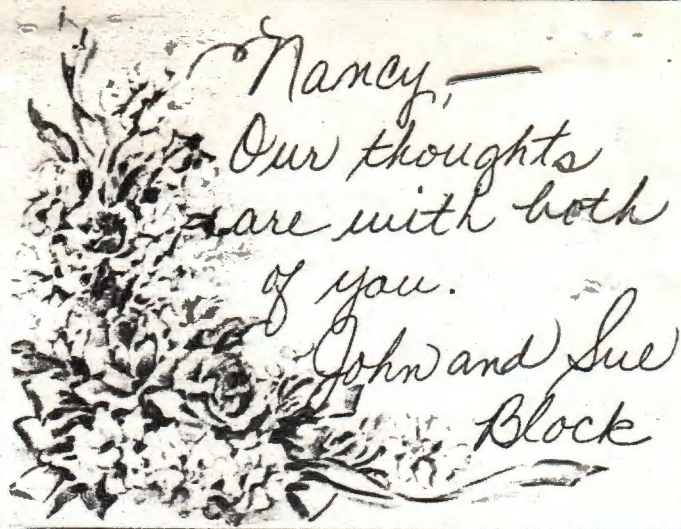 Nancy, —
Our thoughts
are with both
of you.
John and Sue
Block